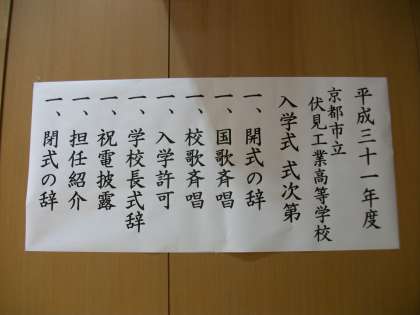 平成三十一年度
京都市立
伏見工業高等学校
入学式 式次第
一、開式の辞
一、国歌斉唱
一、校歌斉唱
一、入学許可
一、学校長式辞
一、祝電披露
一、担任紹介
一、閉式の辞